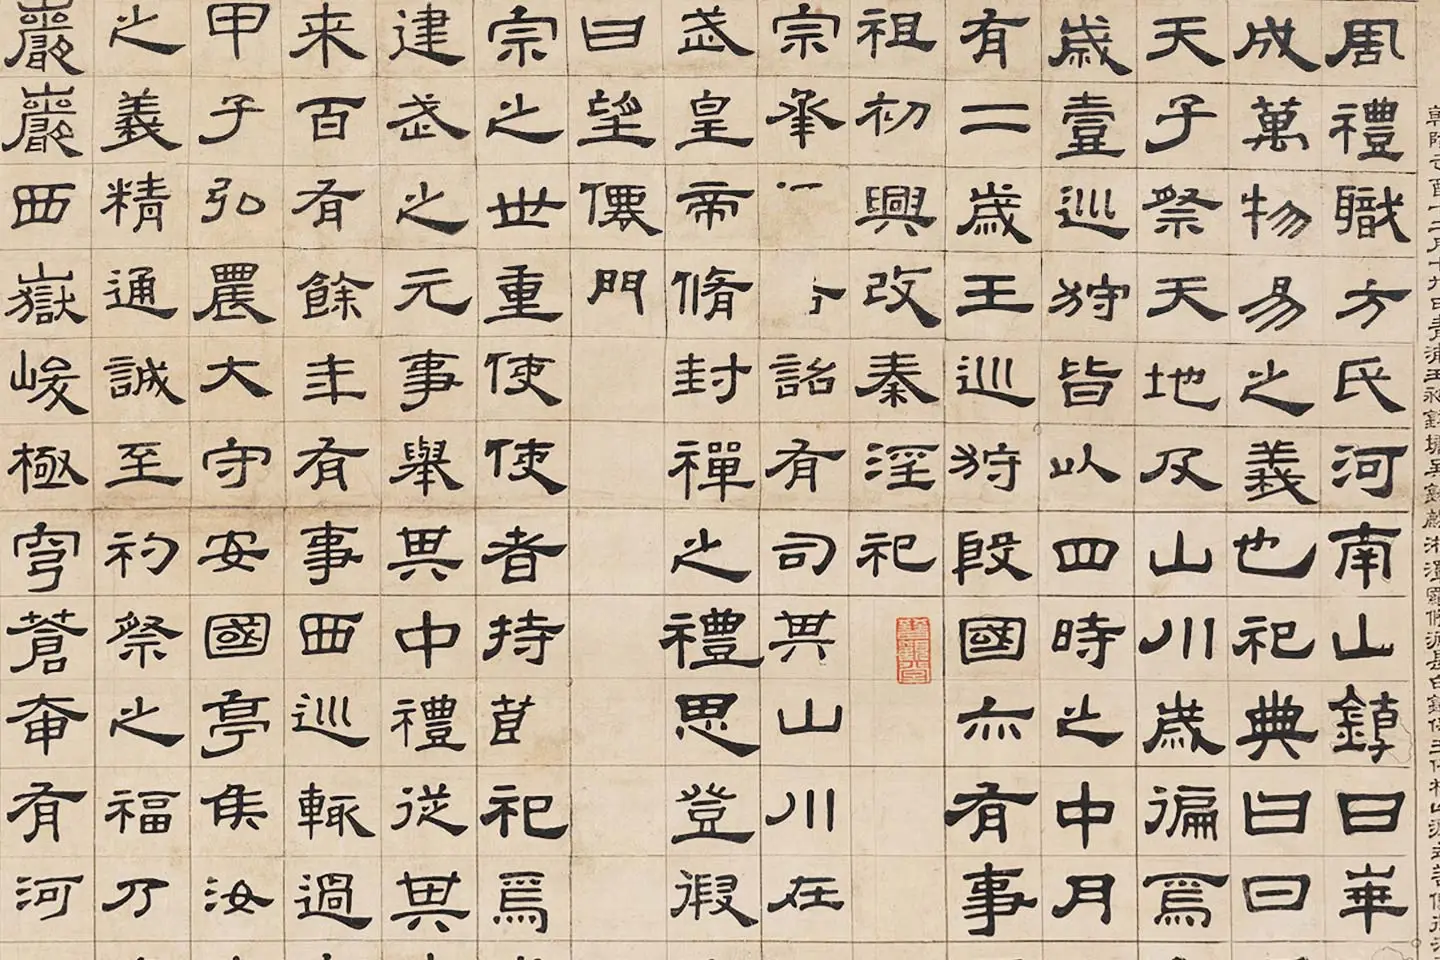 周禮職方氏河南山鎮曰崋
成萬物易之義也祀典曰曰
天子祭天地及山川歲徧焉
歲壹巡狩皆以四時之中月
有二歲王巡狩殷國亦有事
祖初興改秦淫祀
宗承詔有司其山川在
武皇帝脩封禪之禮思登徦
曰望僊門
宗之世重使使者持祀焉
建武之元事舉其中禮從其
来百有餘年有事西巡輒過
甲子弘農大守安國亭矦汝
之義精通誠至礿祭之福乃
巖巖西嶽峻極穹蒼奄有河